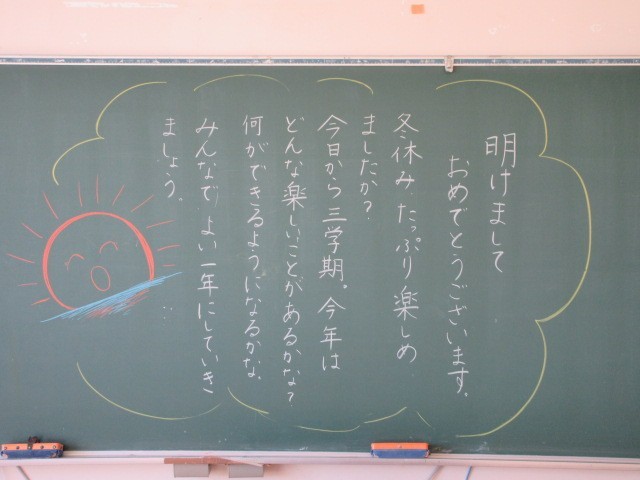 明けまして
おめでとうございます。
冬休み、たっぷり楽しめ
ましたか？
今日から三学期。今年は
どんな楽しいことがあるかな？
何ができるようになるかな。
みんなで、よい一年にしていき
ましょう。